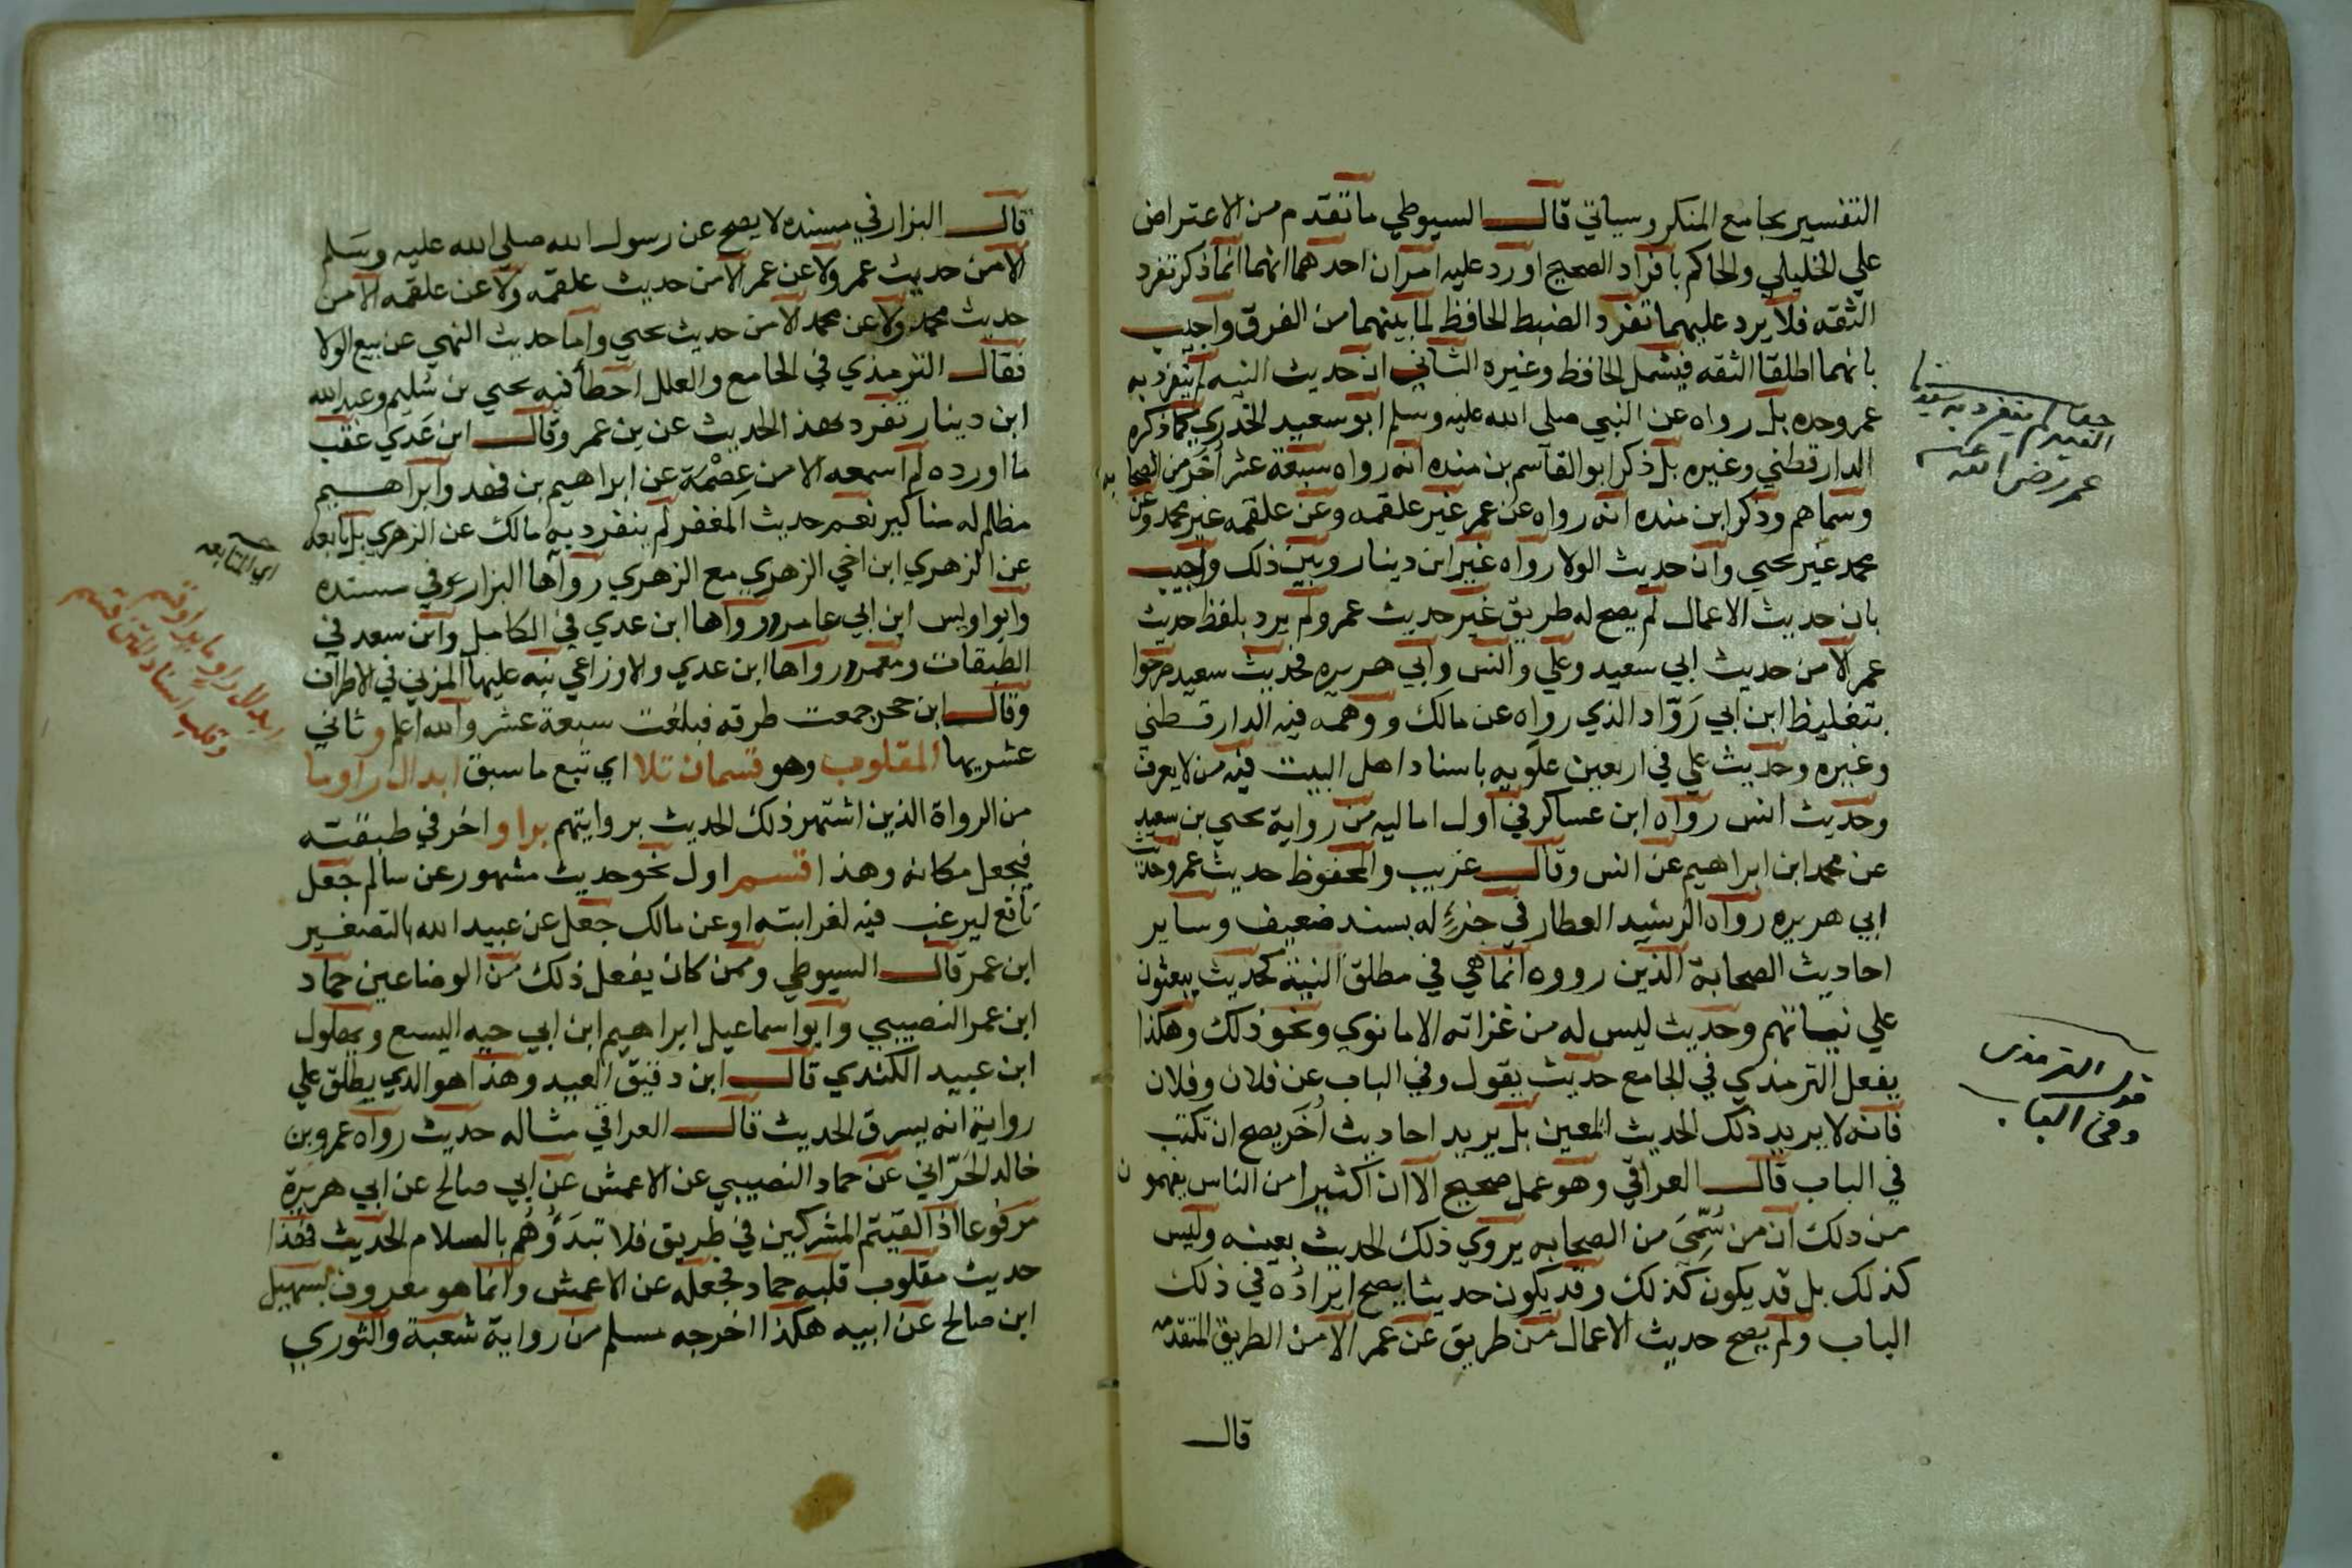 التفسير بجامع المنكر وسياتي قال السيوطي ما تقدم من الاعتراض
علي الخليلي والحاكم بافراد الصحيح اورد عليه امران احدهما انهما انما ذكر تفرد
الثقه فلا يرد عليهما تفرد الضبط الحافظ لما بينهما من الفرق واجيب
بانهما اطلقا الثقه فيشمل الحافظ وغيره الثاني ان حديث النيه لم ينفرد به
عمر وحده بل رواه عن النبي صلي الله عليه وسلم ابو سعيد الخدري كما ذكره
الدارقطني وغيره بل ذكر ابو القاسم بن منده انه رواه سبعة عشر اخر من الصحابه
وسماهم وذكر ابن منده انه رواه عن عمر غير علقمه وعن علقمه غير محمد وعن
محمد غير يحيي وان حديث الولا رواه غير ابن دينار وبين ذلك واجيب
بان حديث الاعمال لم يصح له طريق غير حديث عمر ولم يرد بلفظ حديث
عمر الا من حديث ابي سعيد وعلي وانس وابي هريره فحديث سعيد صرحوا
بتغليظ ابن ابي رَوّاد الذي رواه عن مالك ووهمه فيه الدارقطني
وغيره وحديث علي في اربعين علويه باسناد اهل البيت فيه من لا يعرف
وحديث انس رواه ابن عساكر في اول اماليه من رواية يحيي بن سعيد
عن محمد ابن ابراهيم عن انس وقال غريب والمحفوظ حديث عمر وحديث
ابي هريره رواه الرشيد العطار في جزءٍ له بسند ضعيف وساير
احاديث الصحابة الذين رووه انما هي في مطلق النية كحديث يبعثون
علي نياتهم وحديث ليس له من غزاته الا ما نوي ونحو ذلك وهكذا
يفعل الترمذي في الجامع حديث يقول وفي الباب عن فلان وفلان
فانه لا يريد ذلك الحديث المعين بل يريد احاديث أُخَر يصح ان تكتب
في الباب قال العراقي وهو عمل صحيح الا ان اكثيرا من الناس يفهمون
من ذلك ان من سُمِّيَ من الصحابه يروي ذلك الحديث بعينه وليس
كذلك بل قد يكون كذلك وقد يكون حديثا يصح ايراده في ذلك
الباب ولم يصح حديث الاعمال من طريق عن عمر الا من الطريق المتقدمه
قال
لم ينفرد به سيدنا
عمر رضي الله عنه
قول الترمذي
وفي الباب
قال البزار في مسنده لا يصح عن رسول الله صلي الله عليه وسَلم
الا من حديث عمر ولا عن عمر الا من حديث علقمه ولا عن علقمه الا من
حديث محمد ولا عن محمد الا من حديث يحيي واما حديث النهي عن بيع الولا
فقال الترمذي في الجامع والعلل اخطأ فيه يحيي بن سُليم وعبد الله
ابن دينار تفرد بهذا الحديث عن بن عمر وقال ابن عَدي عقب
ما اورده لم اسمعه الا من عِصْمَة عن ابراهيم بن فهد وابراهيم
مظلم له مناكير نعم حديث المغفر لم ينفرد به مالك عن الزهري بل تابعه
عن الزهري ابن اخي الزهري مع الزهري رواها البزار في مسنده
وابو اويس ابن ابي عامر رواها ابن عدي في الكامل وابن سعد في
الطبقات ومعمر رواها ابن عدي والاوزاعي نبه عليها المزني في الاطراف
وقال ابن حجر جمعت طرقه فبلغت سبعة عشر والله اعلم و ثاني
عشريها المقلوب وهو قسمان تلا اي تبع ما سبق ابدال راو ما
من الرواة الذين اشتهر ذلك الحديث بروايتهم براو اخر في طبقته
فيجعل مكانه وهذا قسم اول نحو حديث مشهور عن سالم جعل
نافع ليرغب فيه لغرابته او عن مالك جعل عن عبيد الله بالتصغير
ابن عمر قال السيوطي وممن كان يفعل ذلك من الوضاعين حماد
ابن عمر النصيبي وابو اسماعيل ابراهيم ابن ابي حيه اليسع وبهلول
ابن عبيد الكندي قال ابن دقيق العيد وهذا هو الذي يطلق علي
رواية انه يسرق الحديث قال العراقي مثاله حديث رواه عمرو بن
خالد الحَرّاني عن حماد النصيبي عن الاعمش عن ابي صالح عن ابي هريرة
مرفوعا اذ القيتم المشركين في طريق فلا تبدَؤُهُم بالسلام الحديث فهذا
حديث مقلوب قلبه حماد فجعله عن الاعمش وانما هو معروف بسهيل
ابن صالح عن ابيه هكذا اخرجه مسلم من رواية شعبة والثوري
اي المتابعه
ابدال راو ما براو قسم
وقلب اسناد لمتن قسم